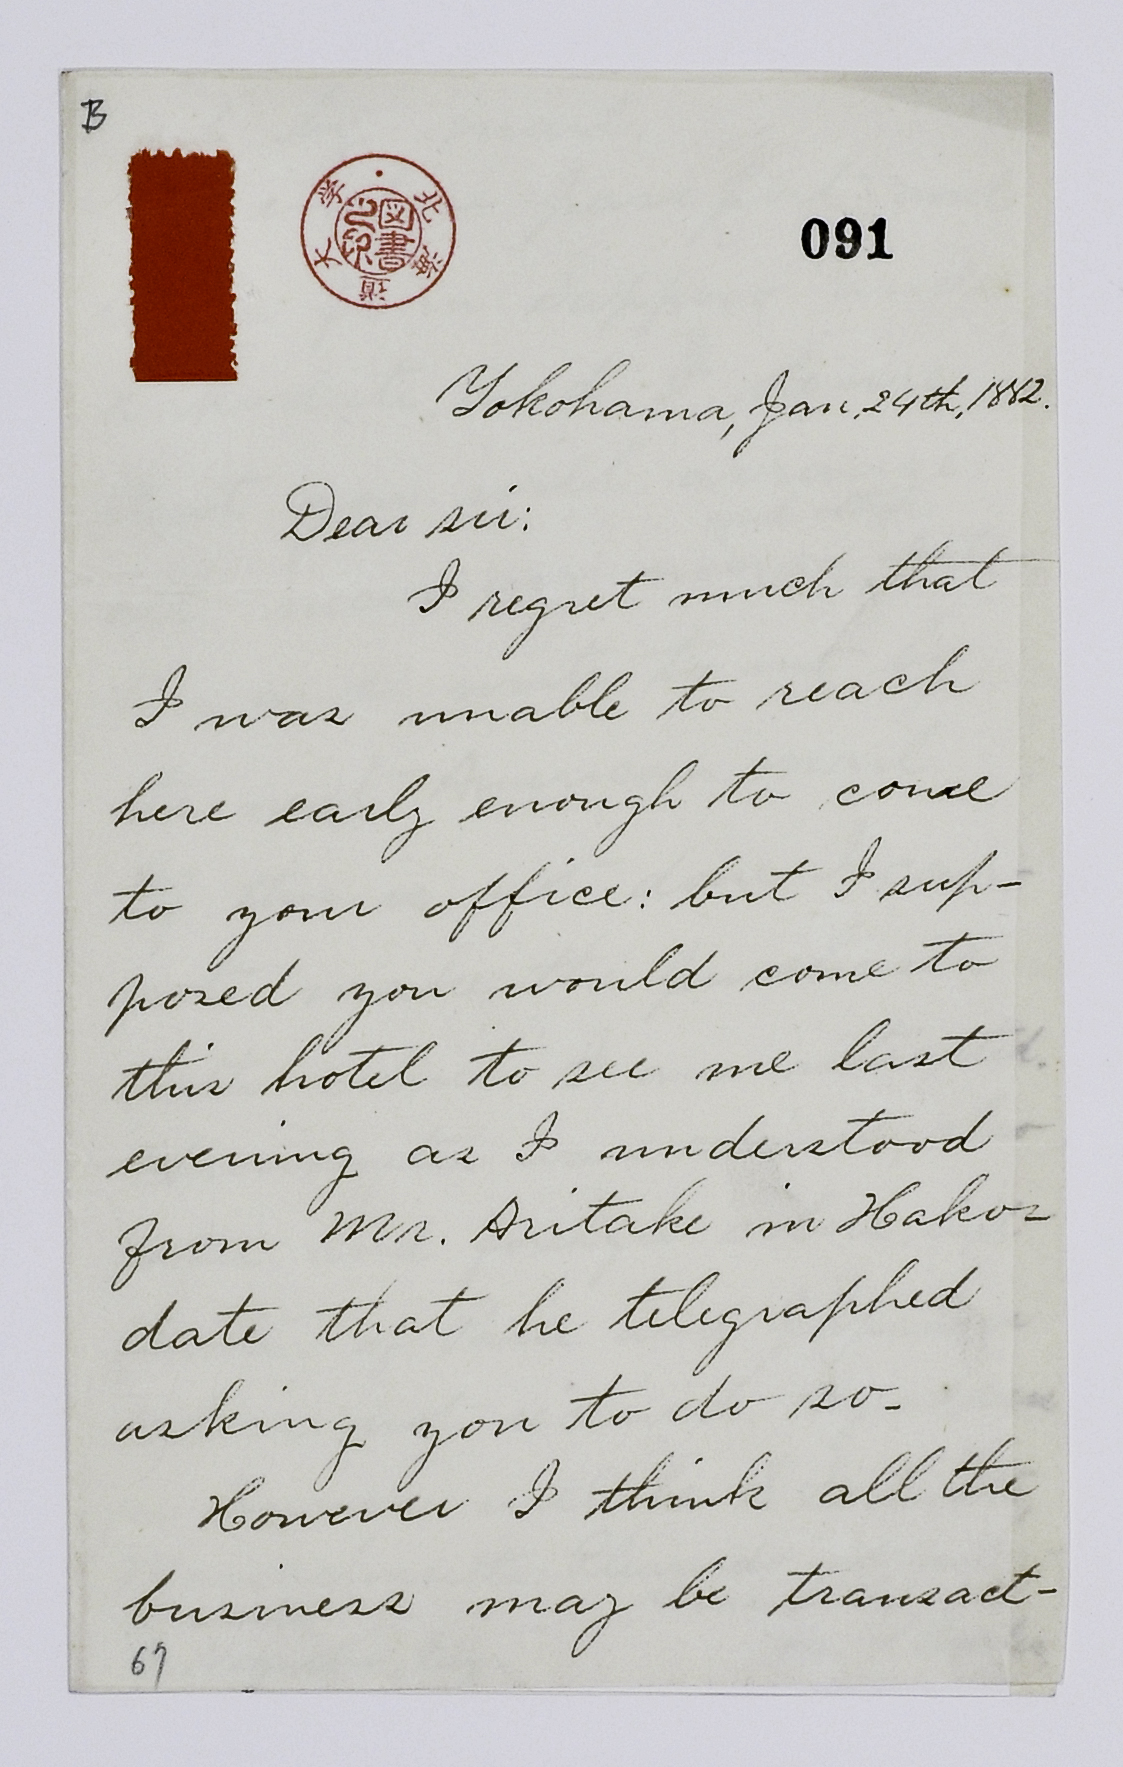 B
北海道大学
図書之印
091
Yokohama, Jan. 24th, 1882.
Dear sir:
I regret much that
I was unable to reach
here early enough to come
to your office: but I sup-
posed you would come to
this hotel to see me last
evening as I understood
from Mr. Aritake in Hako-
date that he telegraphed
asking you to do so.
However I think all the
business may be transact-
67